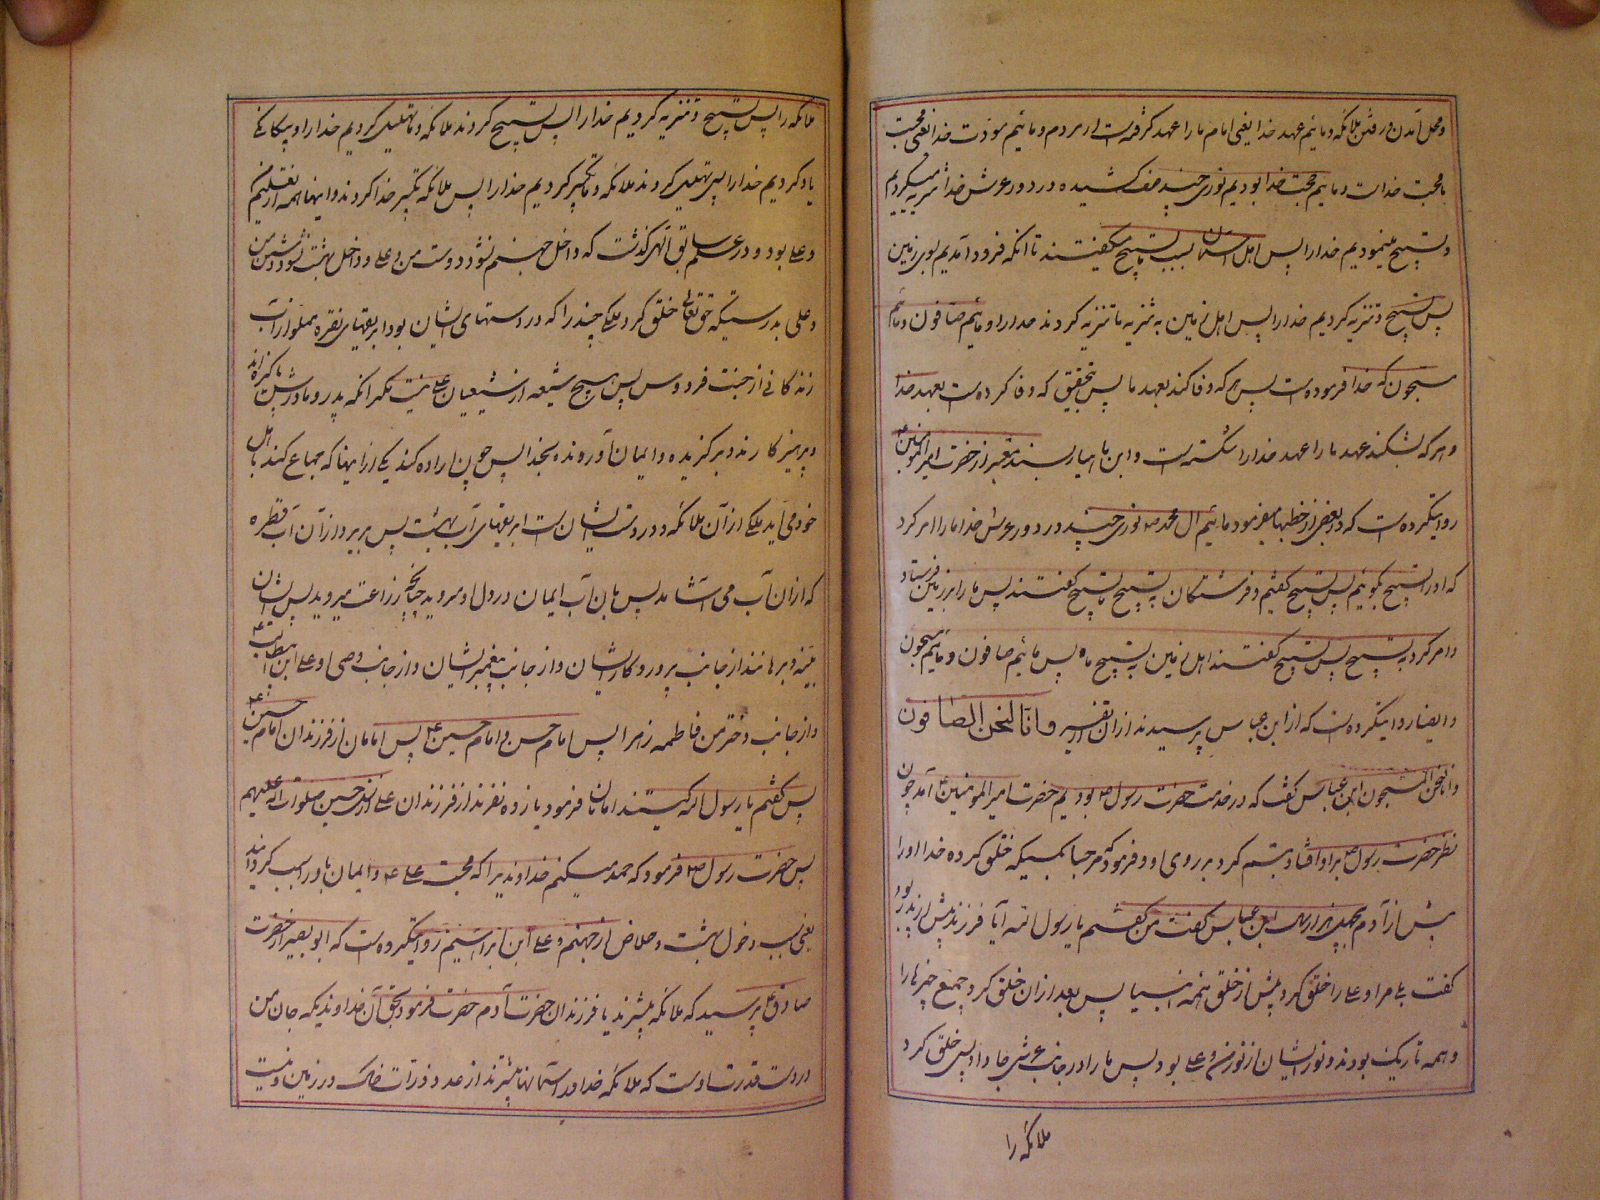 و محل آمدن و رفتن ملائکه و مائیم عهد خدا یعنی امام ما را عهد گرفته است از مردم و مائیم مودت خدا یعنی محبت
با محبت خداست و مائیم محبت خدا بودیم نوری چند صف کشیده در دور عرش خدا تنزیه میکردیم
و تسبیح مینمودیم خدا را پس اهل آسمان بسبب تسبیح ما تسبیح میگفتند تا آنکه فرود آمدیم بسوی زمین
پس تسبیح و تنزیه کردیم خدا را پس اهل زمین به تنزیه ما تنزیه کردند خدا را و مائیم صافون و مائیم
مسبحون که خدا فرموده است پس هر که وفا کند بعهد ما پس بتحقیق که وفا کرده است بعهد خدا
و هر که بشکند عهد ما را عهد خدا را شکسته است و ابن ماهیار بسند معتبر از حضرت امیر المومنین ع
روایتکرده است که در بعضی از خطبها میفرمود مائیم آل محمد ص نوری چند در دور عرش خدا ما را امر کرد
که او را تسبیح بگوئیم پس تسبیح گفتیم و فرشتگان به تسبیح ما تسبیح گفتند پس ما را بر زمین فرستاد
و امر کرد به تسبیح پس تسبیح گفتند اهل زمین به تسبیح ما پس مائیم صافون و مائیم مسبحون
و ایضا روایتکرده است که از ابن عباس پرسیدند از تفسیر و انا لنحن الصافون
و انا لنحن المسبحون ابن عباس گفت که در خدمت حضرت رسول ص بودیم حضرت امیر المومنین ع آمد چون
نظر حضرت رسول ص بر او افتاد تبسم کرد بر روی او و فرمود که مرحبا بکسیکه خلق کرده خدا او را
پیش از آدم بچهل هزار سال ابن عباس گفت من گفتم یا رسول الله آیا فرزند پیش از پدر بود
گفت بلی مرا و علی را خلق کرد پیش از خلق همه اشیا پس بعد از آن خلق کرد جمیع چیزها را
و همه تاریک بودند و نور ایشان از نور من و علی بود پس ما را در جانب عرش جا داد پس خلق کرد
ملائکه را
ملائکه را پس تسبیح و تنزیه کردیم خدا را پس تسبیح کردند ملائکه و ما تهلیل کردیم خدا را و بیگانگی
یاد کردیم خدا را پس تهلیل کردند ملائکه و ما تکبیر کردیم خدا را پس ملائکه تکبیر خدا کردند و اینها همه از تعلیم من
و علی بود و در علم سابق الهی گذشت که داخل جهنم نشود دوست من و علی و داخل بهشت نشود دشمن من
و علی بدرستیکه حق تعالی خلق کرد ملکی چند را که در دستهای ایشان بود ابریقهای نقره مملو از آب
زندگانی از جنت فردوس پس هیچ شیعه از شیعیان علی نیست مگر آنکه پدر و مادرش پاکیزه اند
و پرهیزکارند و برگزیده و ایمان آورنده بخدا پس چون اراده کند یکی از اینها که جماع کند با اهل
خود می آید ملکی از آن ملائکه و در دست ایشان است ابریقهای آب بهشت پس بریزد از آن آب قطره
که از آن آب می آشامد پس بآن آب ایمان در دل او میروید چنانچه زراعت میروید پس ایشان
بینه و برهانند از جانب پروردگار ایشان و از جانب پیغمبر ایشان و از جانب وصی او علی ابن ابیطالب ع
و از جانب دختر من فاطمه زهرا پس امام حسن و امام حسین ع پس امامان از فرزندان امام حسین ع
پس گفتم یا رسول الله کیستند امامان فرمود یازده نفرند از فرزندان علی و حسین صلوات الله علیهم
پس حضرت رسول ص فرمود که حمد میکنم خداوندی را که محبت علی ع و ایمان باو را سبب گردانید
یعنی سبب دخول بهشت و خلاص از جهنم و علی ابن ابراهیم روایتکرده است که ابو بصیر از حضرت
صادق ع پرسید که ملائکه بیشترند یا فرزندان حضرت آدم حضرت فرمود بحق آن خداوندیکه جان من
در دست قدرت اوست که ملائکه خدا در آسمانها بیشترند از عدد ذرات خاک در زمین و نیست